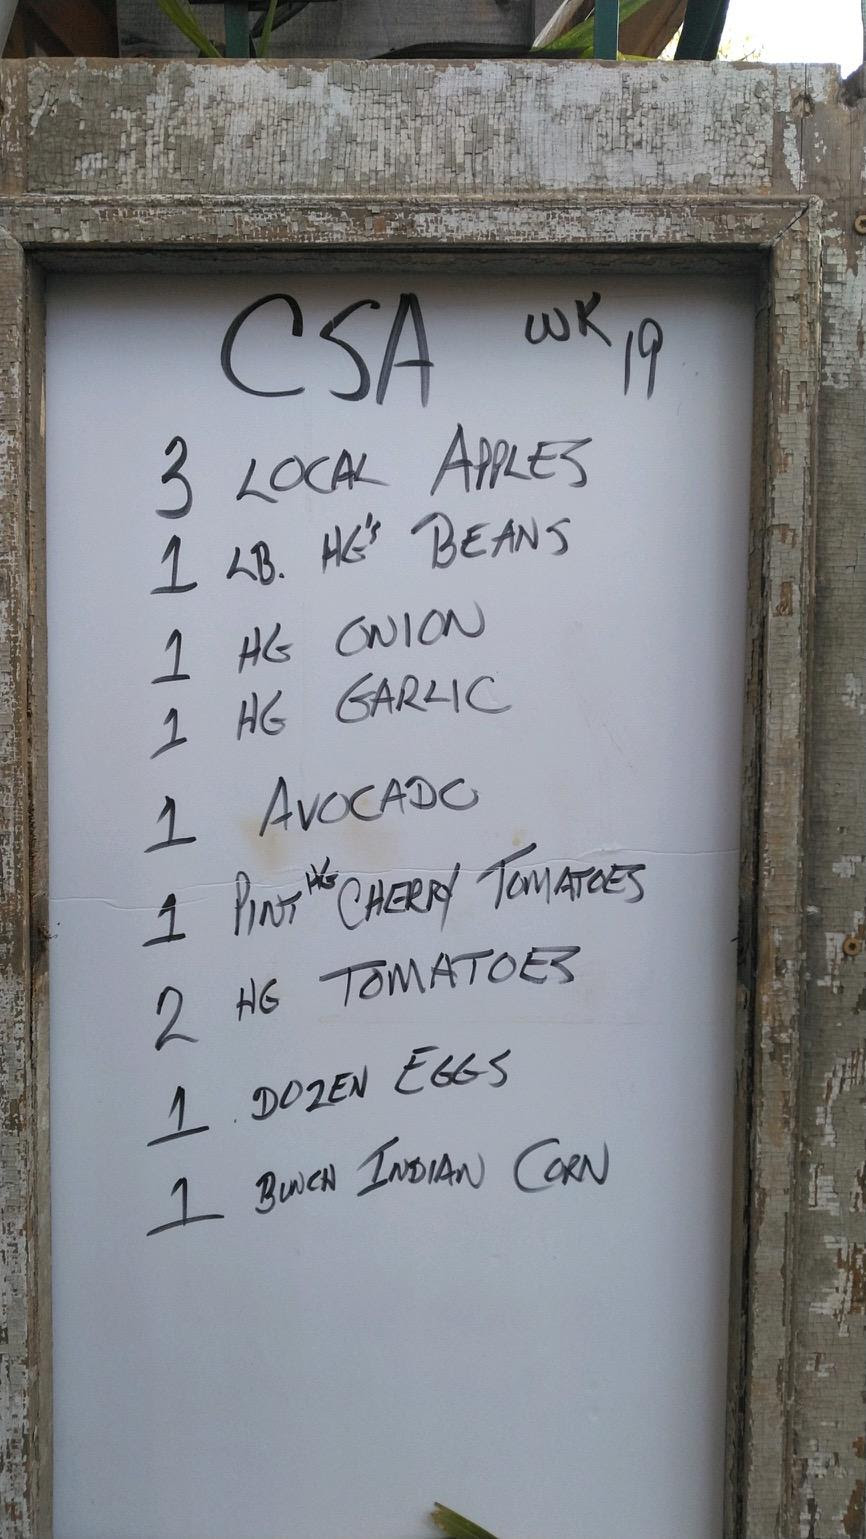 CSA WK 19
3 LOCAL APPLES
1 LB. HG's BEANS
1 HG ONION
1 HG GARLIC
1 AVOCADO
1 PINT HG CHERRY TOMATOES
2 HG TOMATOES
1 DOZEN EGGS
1 BUNCH INDIAN CORN